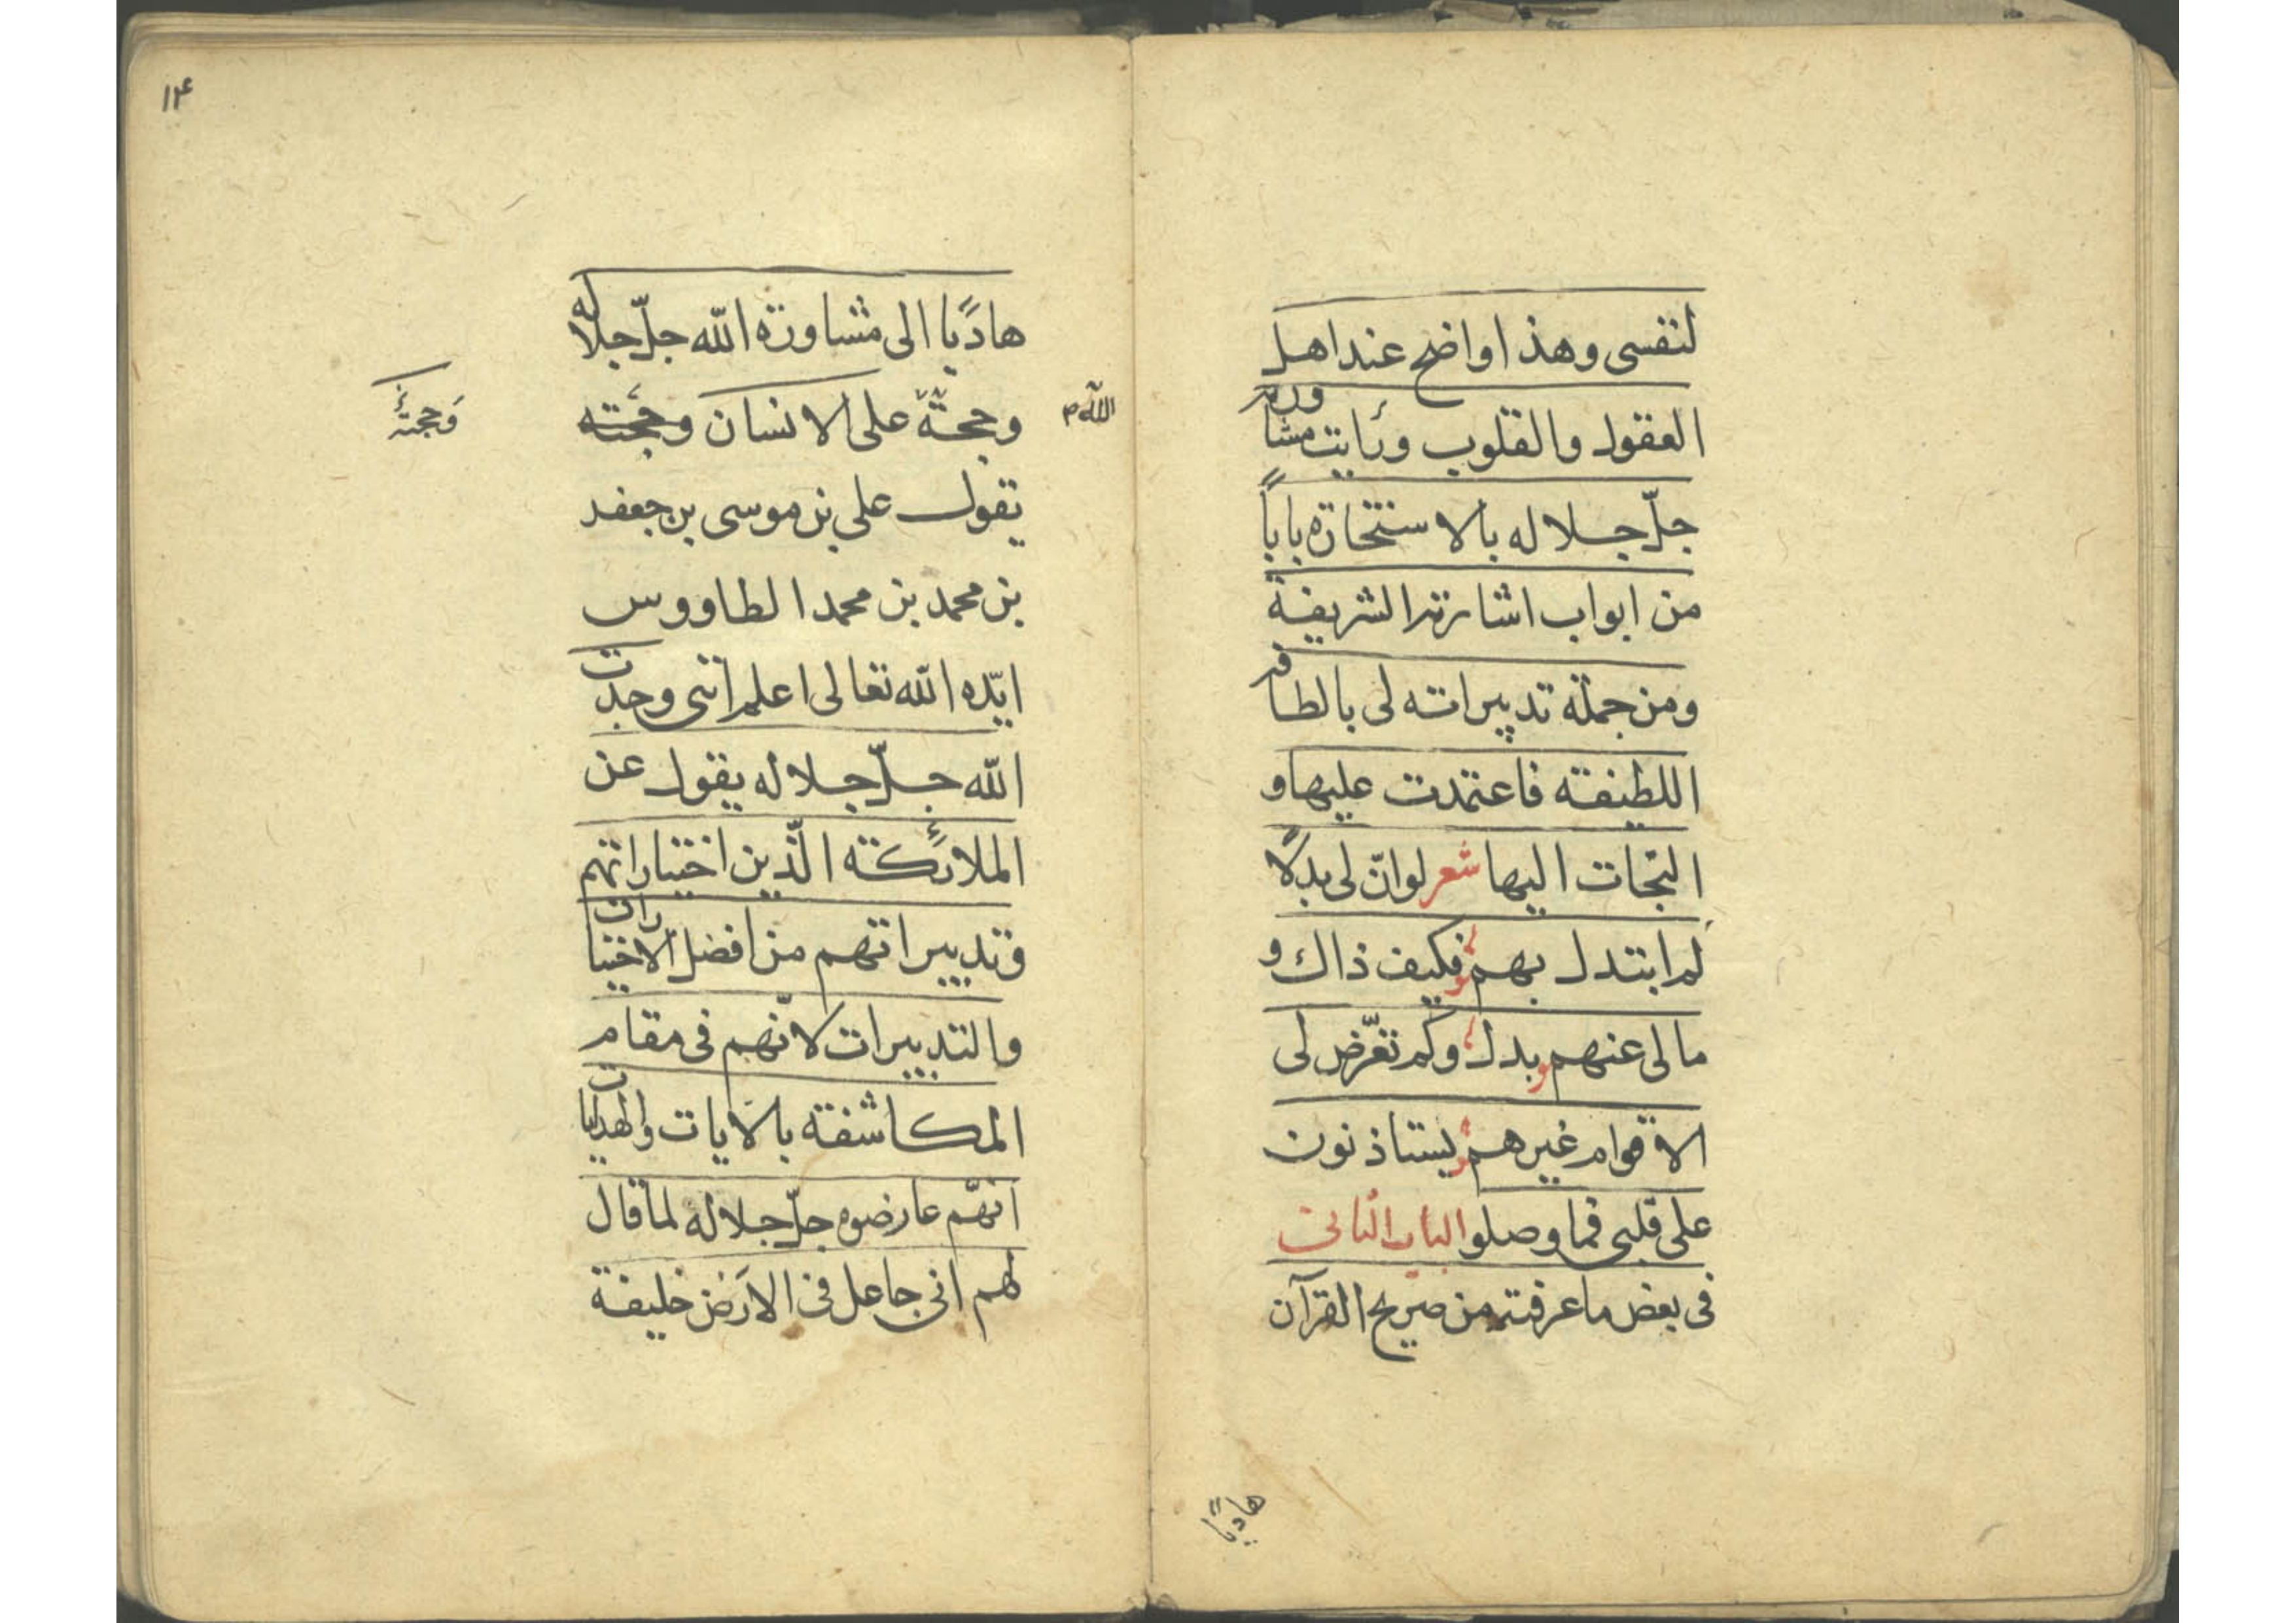 لنفسی وهذا واضح عند اهل
العقول والقلوب ورأیت مشاورة
جلّ جلاله بالاستخارة باباً
من ابواب اشارته الشریفة
ومن جملة تدبیراته لی بالطافه
اللطیفة فاعتمدت علیها و
التجات الیها شعر لو انّ لی بدلًا
لم ابتدل بهم فکیف ذاك و
مالی عنهم بدل وکم تعرّض لی
الاقوام غیرهم یستاذنون
علی قلبی فما وصلوا الباب الثانی
فی بعض ما عرفته من صریح القرآن
هادیًا
۱۴
هادیًا الی مشاورة الله جلّ جلاله
وحجّة علی الانسان وحجّته
اللّه م
وَحجتهُ
یقول علی بن موسی بن جعفر
بن محمد بن محمد الطاووس
ایّده الله تعالی اعلم انّنی وجدت
الله جلّ جلاله یقول عن
الملائکة الّذین اختیاراتهم
وتدبیراتهم من افضل الاختیارات
والتدبیرات لانّهم فی مقام
المکاشفة بالایات والهدایات
انهّم عارضوه جلّ جلاله لما قال
لهم انی جاعل فی الارَض خلیفة